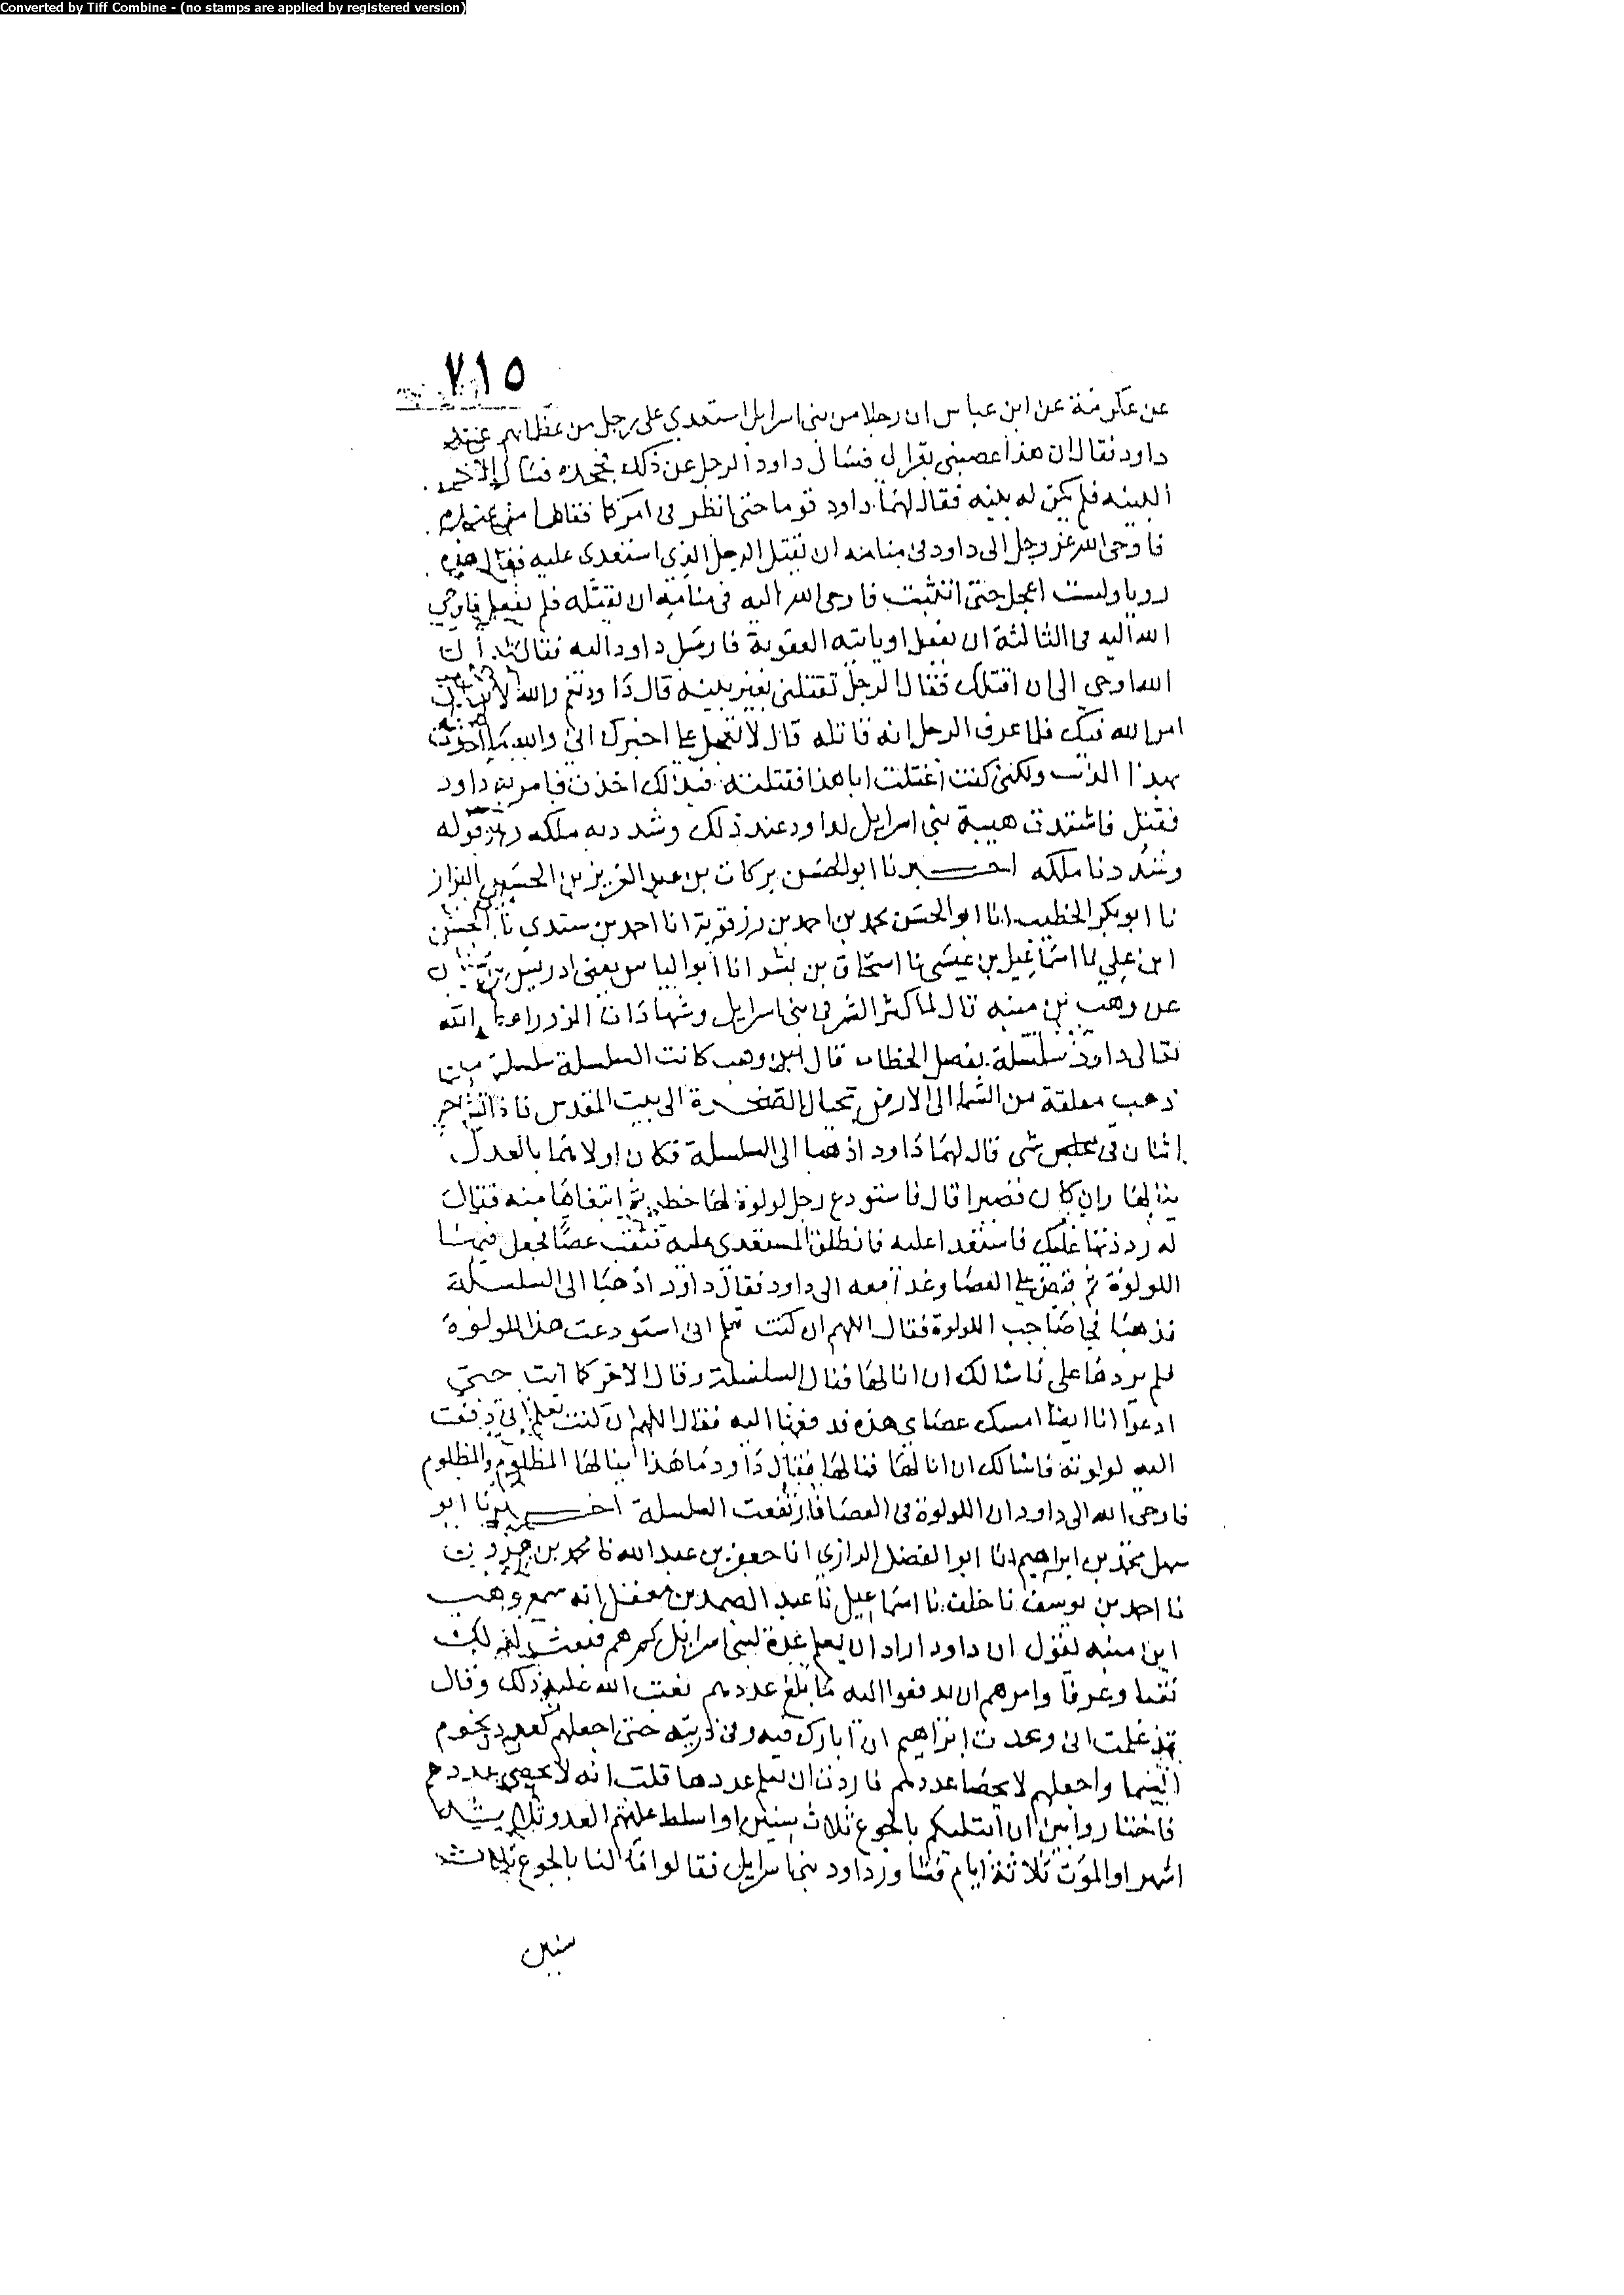 Converted by Tiff Combine - (no stamps are applied by registered version)
٧١٥
عن عكرمة عن ابن عباس ان رجلا من بنى اسرايل استعدي على رجل من عظمايهم عند
داود فقال ان هذا غصبنى بقرا لى فسال داود الرجل عن ذلك فجحده فسال الاخر
البينه فلم تكن له بينه فقال لهما داود قوما حتى انظر فى امركما فقاما من عنده
فاوحى الله عز وجل الى داود فى منامه ان يقتل الرجل الذى استعدى عليه فقال هذه
رويا ولست اعجل حتى اتثبت فاوحى الله اليه فى منامه ان يقتله فلم يفعل فاوحي
الله اليه فى الثالثة ان يقتله او ياتيه العقوبة فارسل داود اليه فقال له ان
الله اوحى الى ان اقتلك فقال الرجل تقتلنى بغير بينه قال داود نعم والله لانفذن
امر الله فيك فلما عرف الرجل انه قاتله قال لا تعجل على اخبرك انى والله ما اخذت
بهذا الذنب ولكنى كنت اغتلت ابا هذا فقتلته فبذلك اخذت فامر به داود
فقتل فاشتدت هيبة بنى اسرايل لداود عند ذلك وشدد به ملكه وهو قوله
وشددنا ملكه اخبرنا ابو الحسن بركات بن عبد العزيز بن الحسين البزاز
نا ابو بكر الخطيب انا ابو الحسن محمد بن احمد بن رزقويه انا احمد بن سندي نا الحسن
ابن علي نا اسماعيل بن عيسى نا اسحاق بن بشر انا ابو الياس يعنى ادريس بن سنان
عن وهب بن منبه قال لما كثر الشر فى بنى اسرايل وشهادات الزور اعطى الله
تعالى داود سلسلة بفصل الخطاب قال ابن وهب كانت السلسلة سلسلة من
ذهب معلقة من السما الى الارض بحيال الصخرة الى بيت المقدس فاذا تشاجر
اثنان فى شى قال لهما داود اذهبا الى السلسلة فكان اولاهما بالعدل
ينالها وان كان قصيرا قال فاستودع رجل لولوة لها خطر ثم ابتغاها منه فقال
له رددتها عليك فاستعدا عليه فانطلق المستعدى عليه فثقب عصا فجعل فيها
اللولوة ثم قبض على العصا وغدا معه الى داود فقال داود اذهبا الى السلسلة
فذهبا فجا صاحب اللولوة فقال اللهم ان كنت تعلم انى استودعت هذا اللولوة
فلم يردها على فاسالك ان انالها فنال السلسلة وقال الاخر كما انت حتى
ادعوا انا ايضا امسك عصاى هذه فدفعها اليه فقال اللهم ان كنت تعلم انى دفعت
اليه لولوته فاسالك ان انالها فنالها فقال داود ما هذا ينالها الظالم والمظلوم
فاوحى الله الى داود ان اللولوة فى العصا فارتفعت السلسلة اخبرنا ابو
سهل محمد بن ابراهيم انا ابو الفضل الرازي انا جعفر بن عبد الله نا محمد بن هرون
نا احمد بن يوسف نا خلف نا اسماعيل نا عبد الصمد بن معقل انه سمع وهب
ابن منبه يقول ان داود اراد ان يعلم عدة بنى اسرايل كم هم فبعث لذلك
نقبا وعرفا وامرهم ان يدفعوا اليه ما بلغ عددهم فعتب الله عليه ذلك وقال
قد علمت انى وعدت ابراهيم ان ابارك فيه وفى ذريته حتى اجعلهم كعدد نجوم
السما واجعلهم لا يحصا عددهم فاردت ان تعلم عددها قلت انه لا يحصى عددهم
فاختاروا بين ان ابتليكم بالجوع ثلاث سنين او اسلط عليكم العدو ثلاثة
اشهر او الموت ثلاثة ايام فشاور داود بنى اسرايل فقالوا ما لنا بالجوع ثلاث
سنين